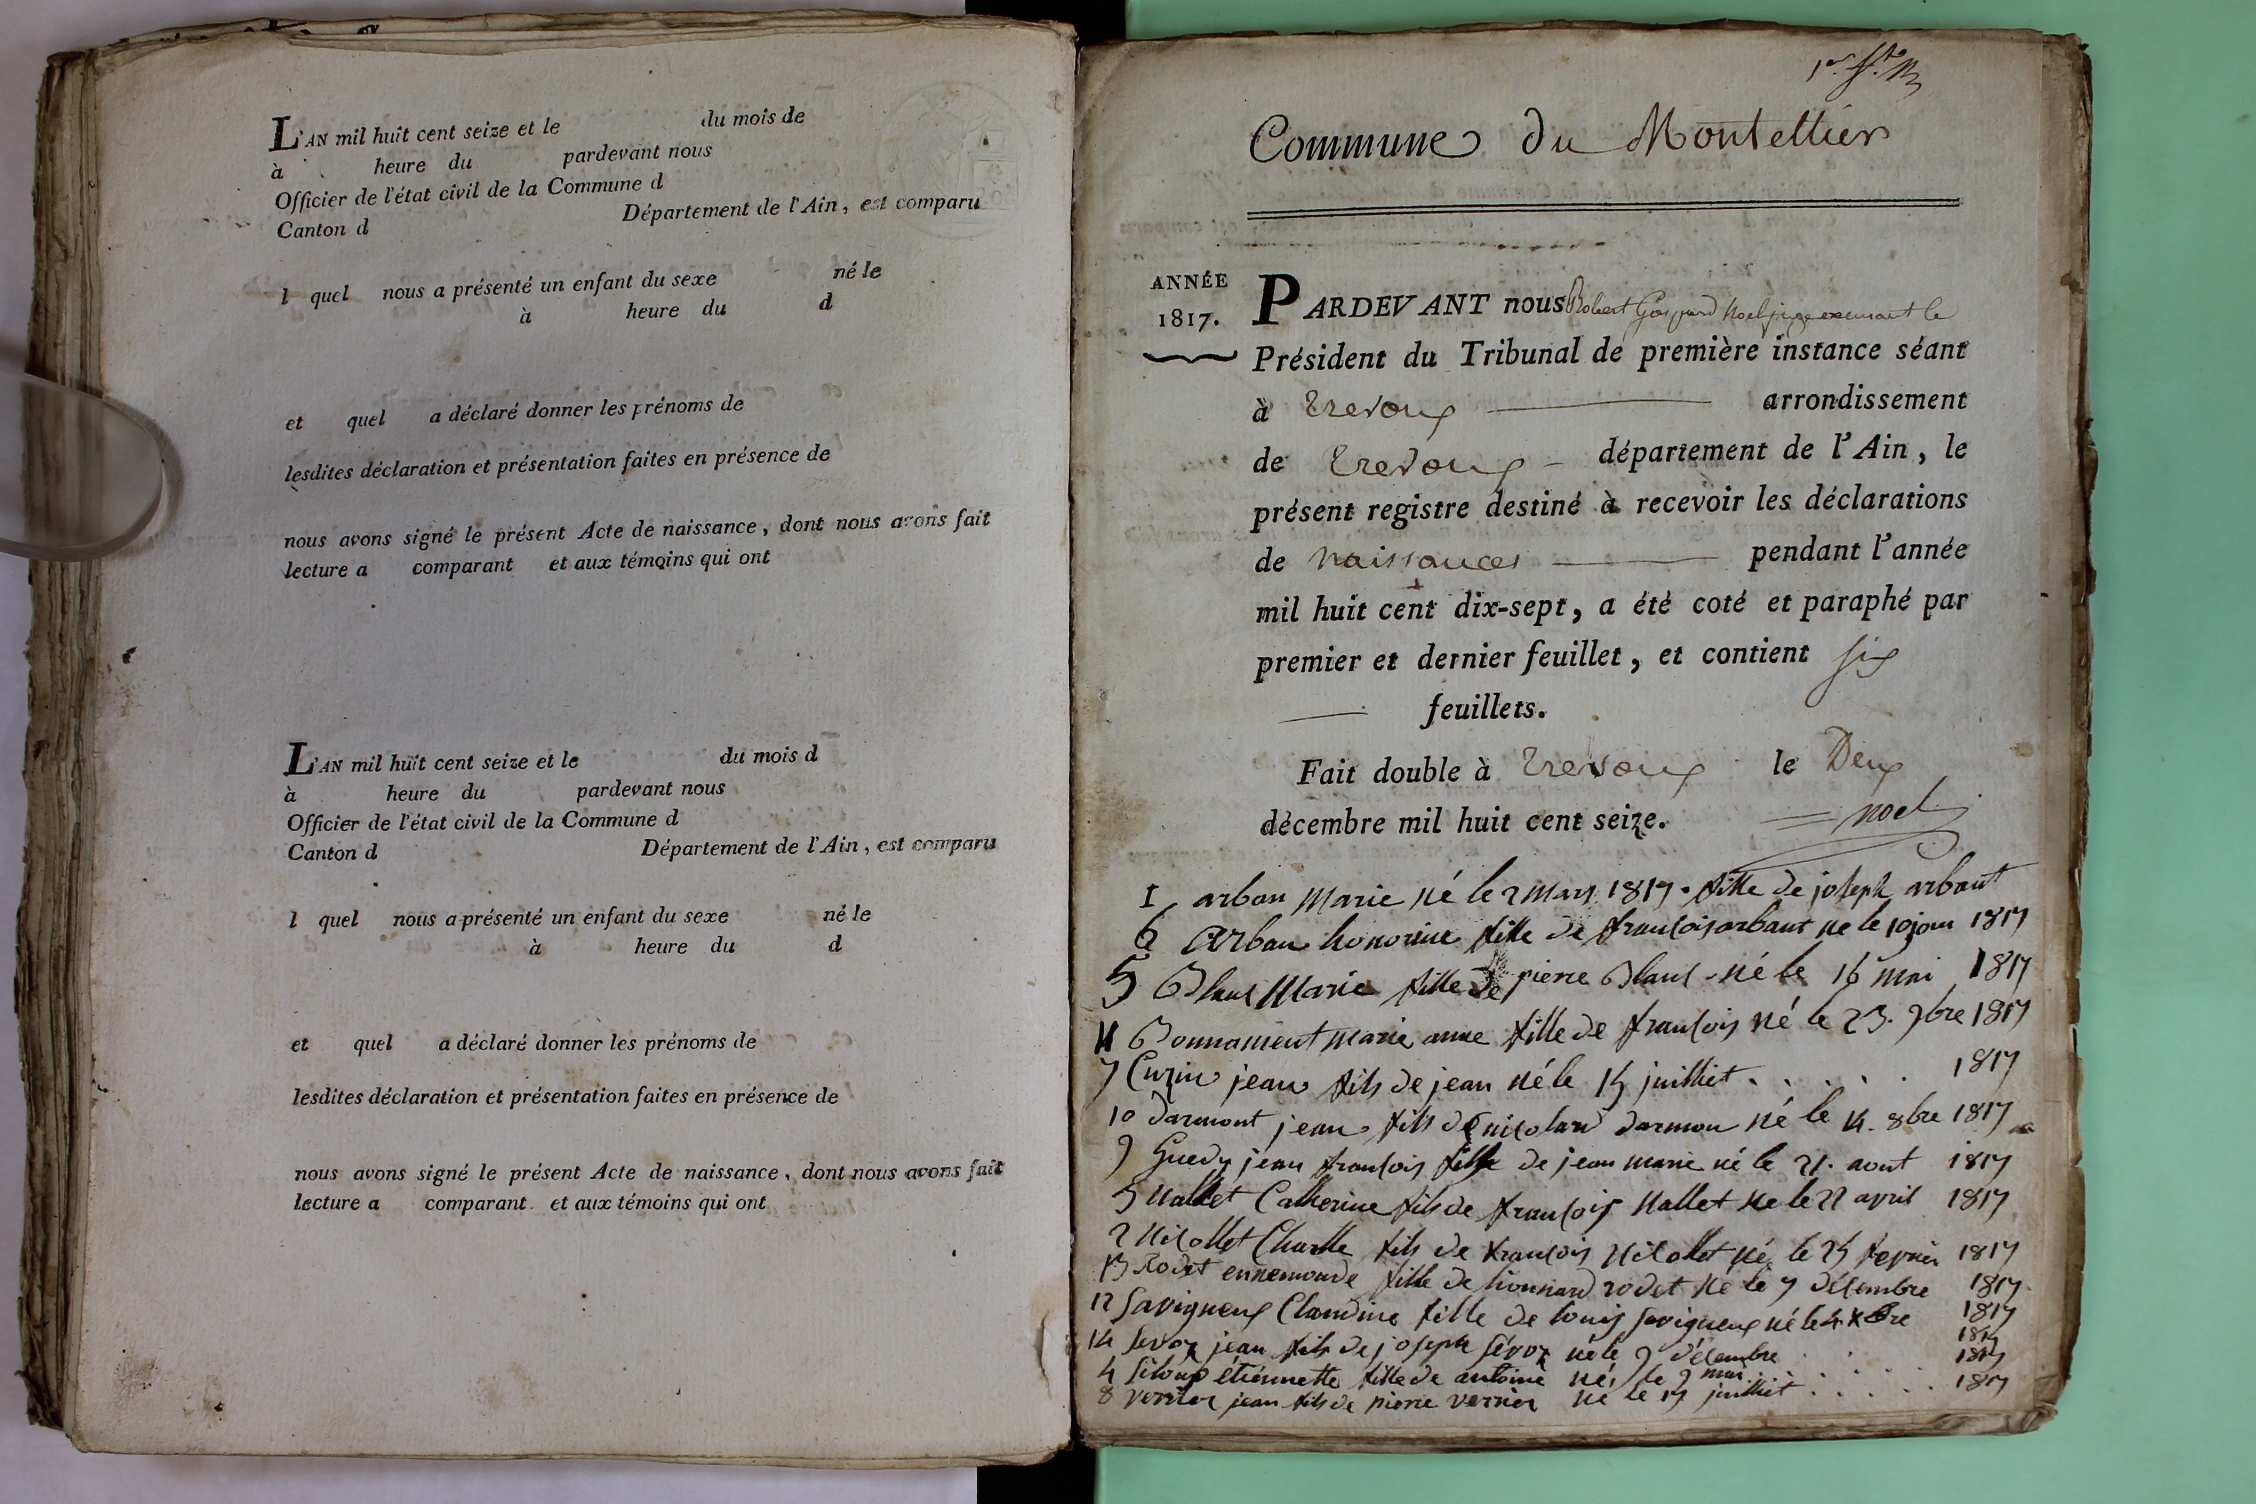 L'AN mil huit cent seize et le du mois de
à heure du pardevant nous
Officier de l'état civil de la Commune d
Canton d Département de l'Ain, est comparu
l quel nous a présenté un enfant du sexe né le
à heure du d
et quel a déclaré donner les prénoms de
lesdites déclaration et présentation faites en présence de
nous avons signé le présent Acte de naissance, dont nous avons fait
lecture a comparant et aux témoins qui ont
L'AN mil huit cent seize et le du mois d
à heure du pardevant nous
Officier de l'état civil de la Commune d
Canton d Département de l'Ain, est comparu
l quel nous a présenté un enfant du sexe né le
à heure du d
et quel a déclaré donner les prénoms de
lesdites déclaration et présentation faites en présence de
nous avons signé le présent Acte de naissance, dont nous avons fait
lecture a comparant et aux témoins qui ont
Commune du Montellier
ANNÉE
1817.
PARDEVANT nous Robert Gaspard Noel juge exerçant le
Président du Tribunal de première instance séant
à Trevoux arrondissement
de Trevoux département de l'Ain, le
présent registre destiné à recevoir les déclarations
de naissances pendant l'année
mil huit cent dix-sept, a été coté et paraphé par
premier et dernier feuillet, et contient six
feuillets.
Fait double à Trevoux le Deux
décembre mil huit cent seize. noel
1 arban Marie né le 2 mars 1817. fille de joseph arbant
6 Arban honorine fille de françois arbant ne le 10 juin 1817
5 Blanc Marie fille de pierre Blanc né le 16 mai 1817
11 Bonnament marie anne fille de françois né le 23. 9bre 1817
7 Curin jean fils de jean né le 15 juilliet . . . . . 1817
10 darmont jean fils de nicolard darmon né le 14. 8bre 1817
9 Guedy jean françois fils de jean marie né le 21. aout 1817
3 Nallet Catherine fils de françois Nallet ne le 22 avril 1817
2 Nicollet Charlle fils de françois Nicollet né le 25 fevrier 1817
13 Rodet ennemonde fille de lionnard rodet né le 7 décembre 1817.
12 Savigneux Claudine fille de louis savigneux né le 4 Xbre 1817
14 Sevoz jean fils de joseph sévoz né le 9 décembre . . 1817
4 Siloup étiennette fille de antoine né, le 9 mai . . . . 1817
8 Verrier jean fils de pierre verrier né le 17 juilliet . . . . . . 1817